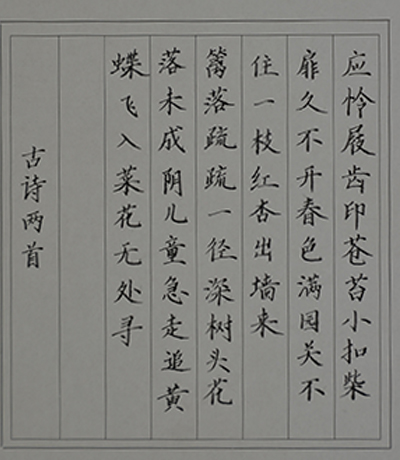 应怜屐齿印苍苔小扣柴
扉久不开春色满园关不
住一枝红杏出墙来
篱落疏疏一径深树头花
落未成阴儿童急走追黄
蝶飞入菜花无处寻
古诗两首